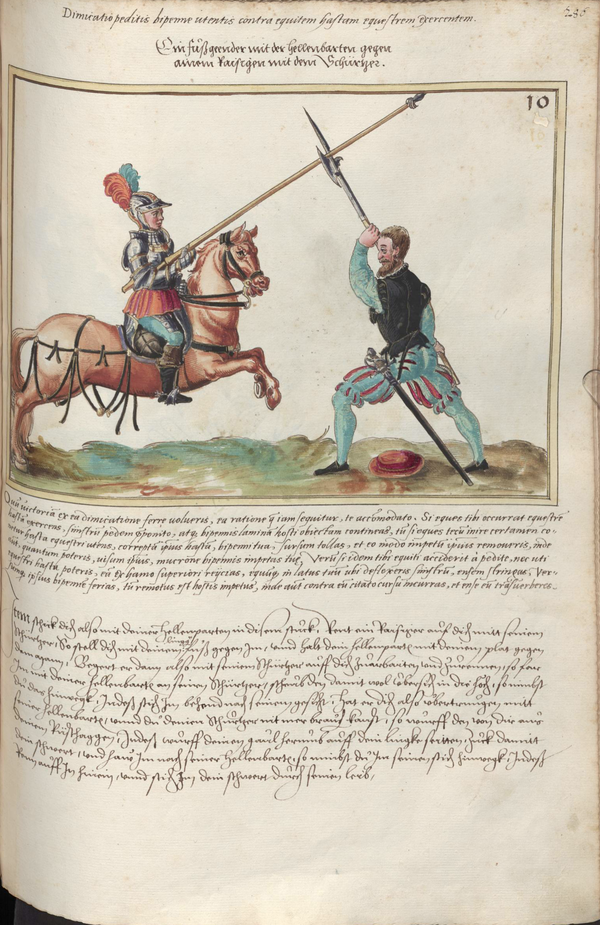 Dimicatio peditis bipenne utentis contra equitem hastam equestrem exercentem.
286
Ein fuߑgeender mit der hellenbarten gegen
ainem Raisigen mit dem Schürtzer.
10
victoria ex ea dimicatione ferre volueris, ea ratione quae iam sequitur, te accomodato. Si eques tibi occurrat equestre
hasta exercens, sinistrum pedem bipennis lamina hosti obiectam contineas, tum si eques tecum inire certamen co-
hasta equestri utens, correpta ipsius hasta, bipenni tua, sursum tollas, eo modo impetum ipsius removeris, inde
quantum poteris, visum ipsius, mucrone bipennis impetas tuae. Verum si idem tibi equiti acciderit à pedite, nec uti
equestri hasta poteris, eam ex hamo superiori reijcias, equumque in latus tuum ubi deflexeris sinistrum, ensem stringas, Ver-
ipsius bipennem ferias, tum remotus est hostis impetus, inde aut contra eum citato cursu incurras, et ense eum transverberes.
Item schick dich also mit deiner Hellenparten in disem stuck, Rent ein Raisiger auf dich mitt seinem
Schürtzer, So stell dich mit deinem fuß gegen Im, unnd halt dein hellenparten mit deinem plat gegen
dem gaul, Begert er dann also mit seinem Schürtzer auff dich zuarbaiten und zurennen, so far
Im mit deiner hellenbarten an seinen Schürtzer, scheub den damit wol ubersich in die höch, so nimbst
du das hinwegk, Indeß stich Im behend nach seinem gesicht, Hat er dich also ubertrungen mitt
seiner hellenbarten, unnd du deinen Schürtzer nit mer brauchen kanst, so wurff den von dir aus
deinem Rüsthaggen, Indeß wurff deinen gaul herumb auff dein lingke seitten, zuck damit
dein schwert, und haw Im nach seiner hellenbarten, so nimbst du Im seinen stich hinwegk, Indeß
Renn auff In hinein, unnd stich In dein schwert durch seinen leib,